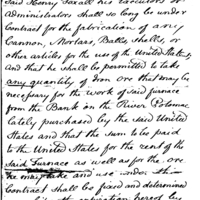 said Henry Foxall his executors or
Administrators shall so long be under
Contract for the fabrication of any
Cannon, Mortars, Balls, Shells, or
other articles for the use of the United States,
and that he shall be permitted to take
any quantity of Iron Ore that may be
necessary for the work of said furnace
from the Bank on the River Potomac
lately purchased by the said United
States and that the sum to be paid
to the United States for the rent of the
said Furnace as well as for the ore
he may take and use under the
Contract shall be fixed and determined
expiration hereof by